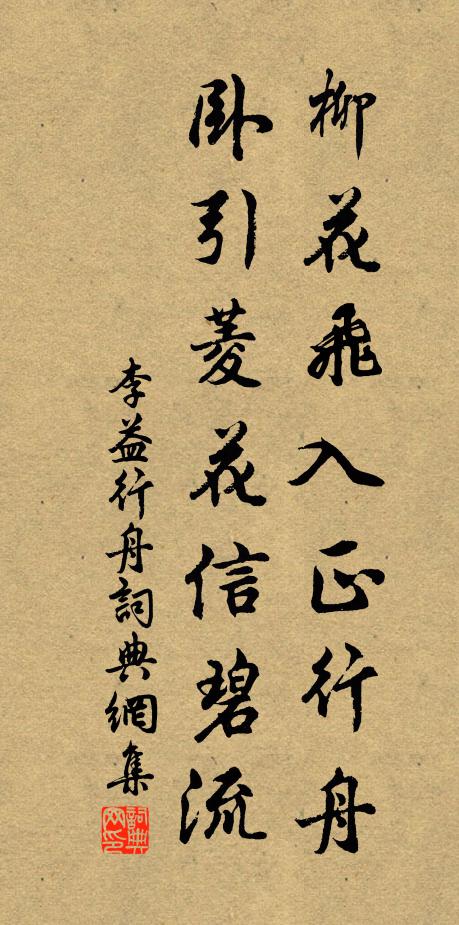 柳花飛入正行舟
臥引菱花信碧流
李益行舟詞典網集
詞典網印